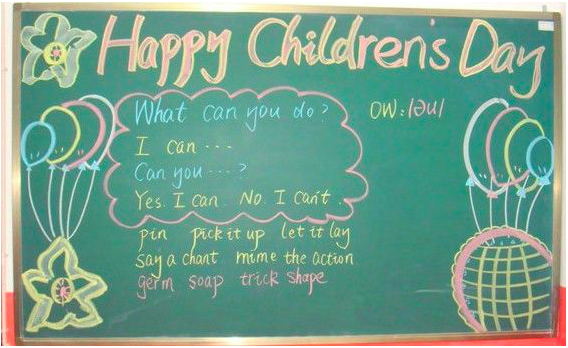 Happy Children's Day
What can you do?
ow:/əu/
I can ...
Can you ....?
Yes. I can No. I can't.
pin pick it up let it lay
say a chant mime the action
germ soap trick shape